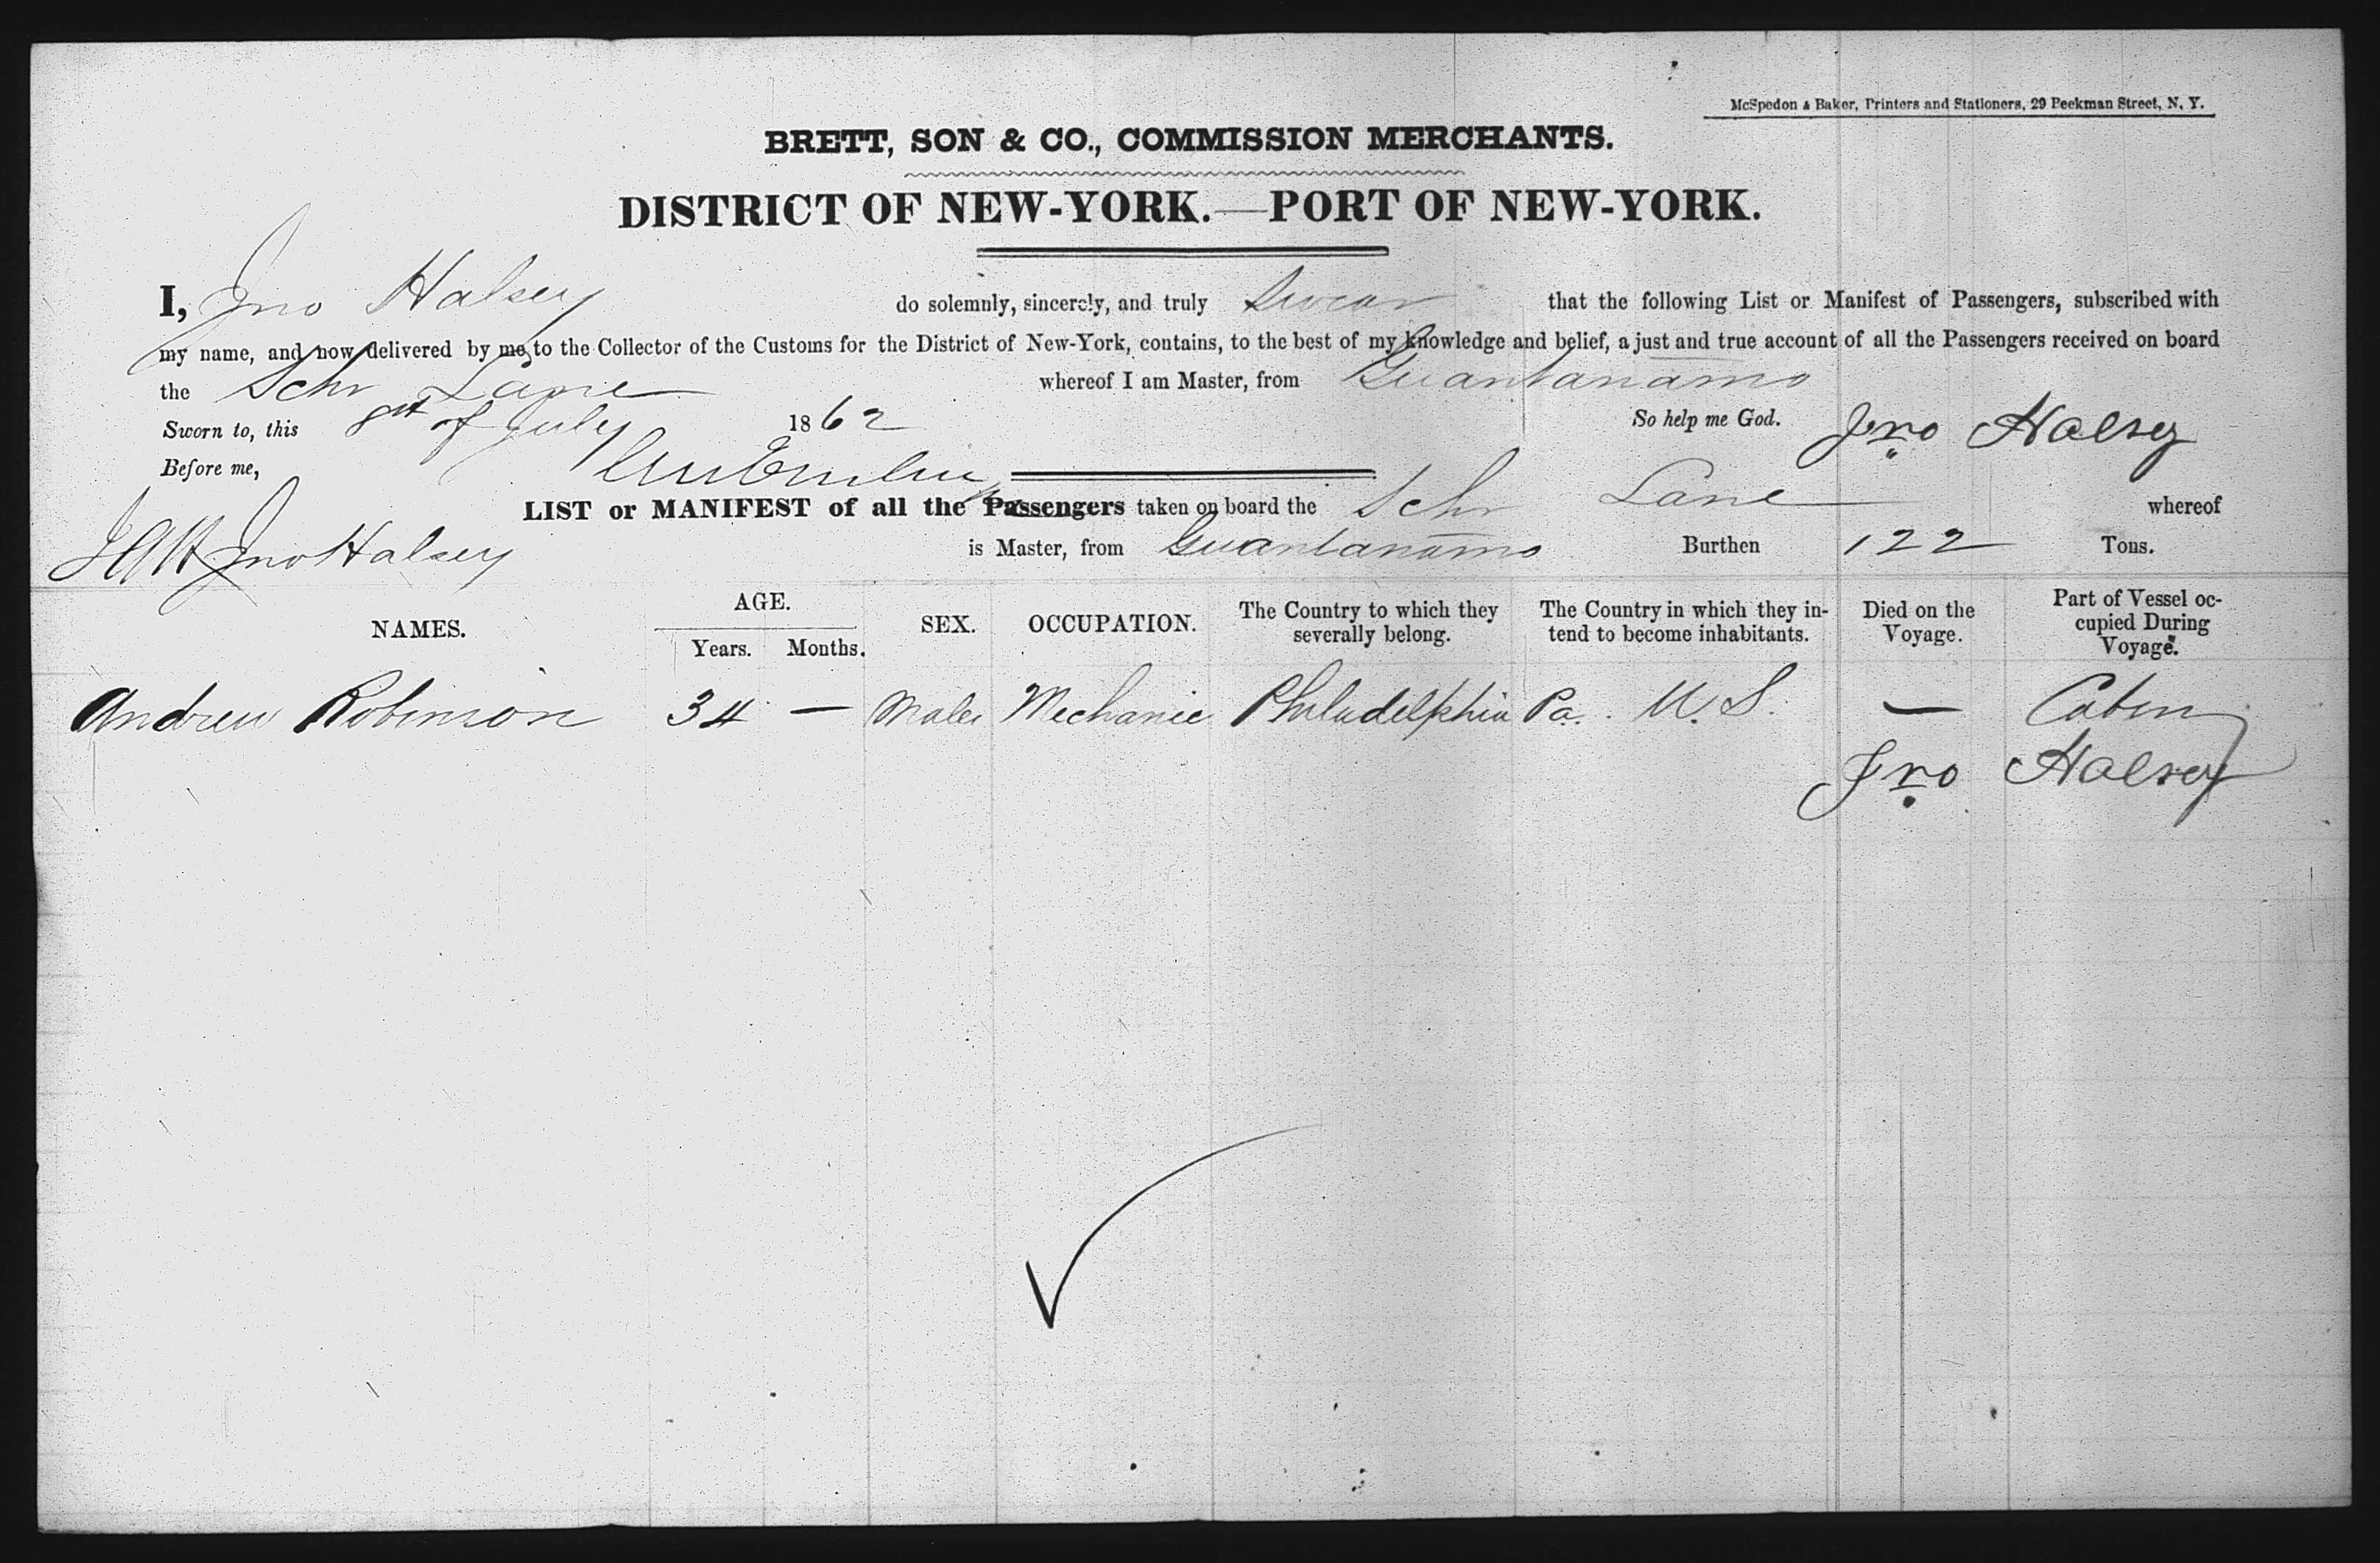 McSpedon & Baker, Printers and Stationers, 29 Beekman Street, N. Y.
BRETT, SON & CO., COMMISSION MERCHANTS.
DISTRICT OF NEW-YORK.—PORT OF NEW-YORK.
I, Jno Halsey do solemnly, sincerely, and truly Swear that the following List or Manifest of Passengers, subscribed with
my name, and now delivered by me to the Collector of the Customs for the District of New-York, contains, to the best of my knowledge and belief, a just and true account of all the Passengers received on board
the Schr Lane whereof I am Master, from Guantanamo
Sworn to, this 8th of July 1862 So help me God. Jno Halsey
Before me,
LIST or MANIFEST of all the Passengers taken on board the Schr Lane whereof
Jno Halsey is Master, from Guantanamo Burthen 122 Tons.
NAMES. AGE. Years. Months. SEX. OCCUPATION. The Country to which they severally belong. The Country in which they intend to become inhabitants. Died on the Voyage. Part of Vessel occupied During Voyage.
Andrew Robinson 34 — Male Mechanic Philadelphia Pa. U.S. — Cabin
Jno Halsey